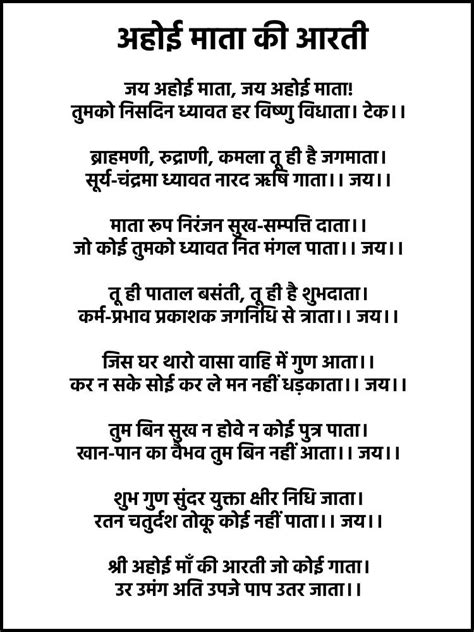 अहोई माता की आरती
जय अहोई माता, जय अहोई माता!
तुमको निसदिन ध्यावत हर विष्णु विधाता। टेक।।
ब्राहमणी, रुद्राणी, कमला तू ही है जगमाता।
सूर्य-चंद्रमा ध्यावत नारद ऋषि गाता।। जय।।
माता रूप निरंजन सुख-सम्पत्ति दाता।।
जो कोई तुमको ध्यावत नित मंगल पाता।। जय।।
तू ही पाताल बसंती, तू ही है शुभदाता।
कर्म-प्रभाव प्रकाशक जगनिधि से त्राता।। जय।।
जिस घर थारो वासा वाहि में गुण आता।।
कर न सके सोई कर ले मन नहीं धड़काता।। जय।।
तुम बिन सुख न होवे न कोई पुत्र पाता।
खान-पान का वैभव तुम बिन नहीं आता।। जय।।
शुभ गुण सुंदर युक्ता क्षीर निधि जाता।
रतन चतुर्दश तोकू कोई नहीं पाता।। जय।।
श्री अहोई माँ की आरती जो कोई गाता।
उर उमंग अति उपजे पाप उतर जाता।।